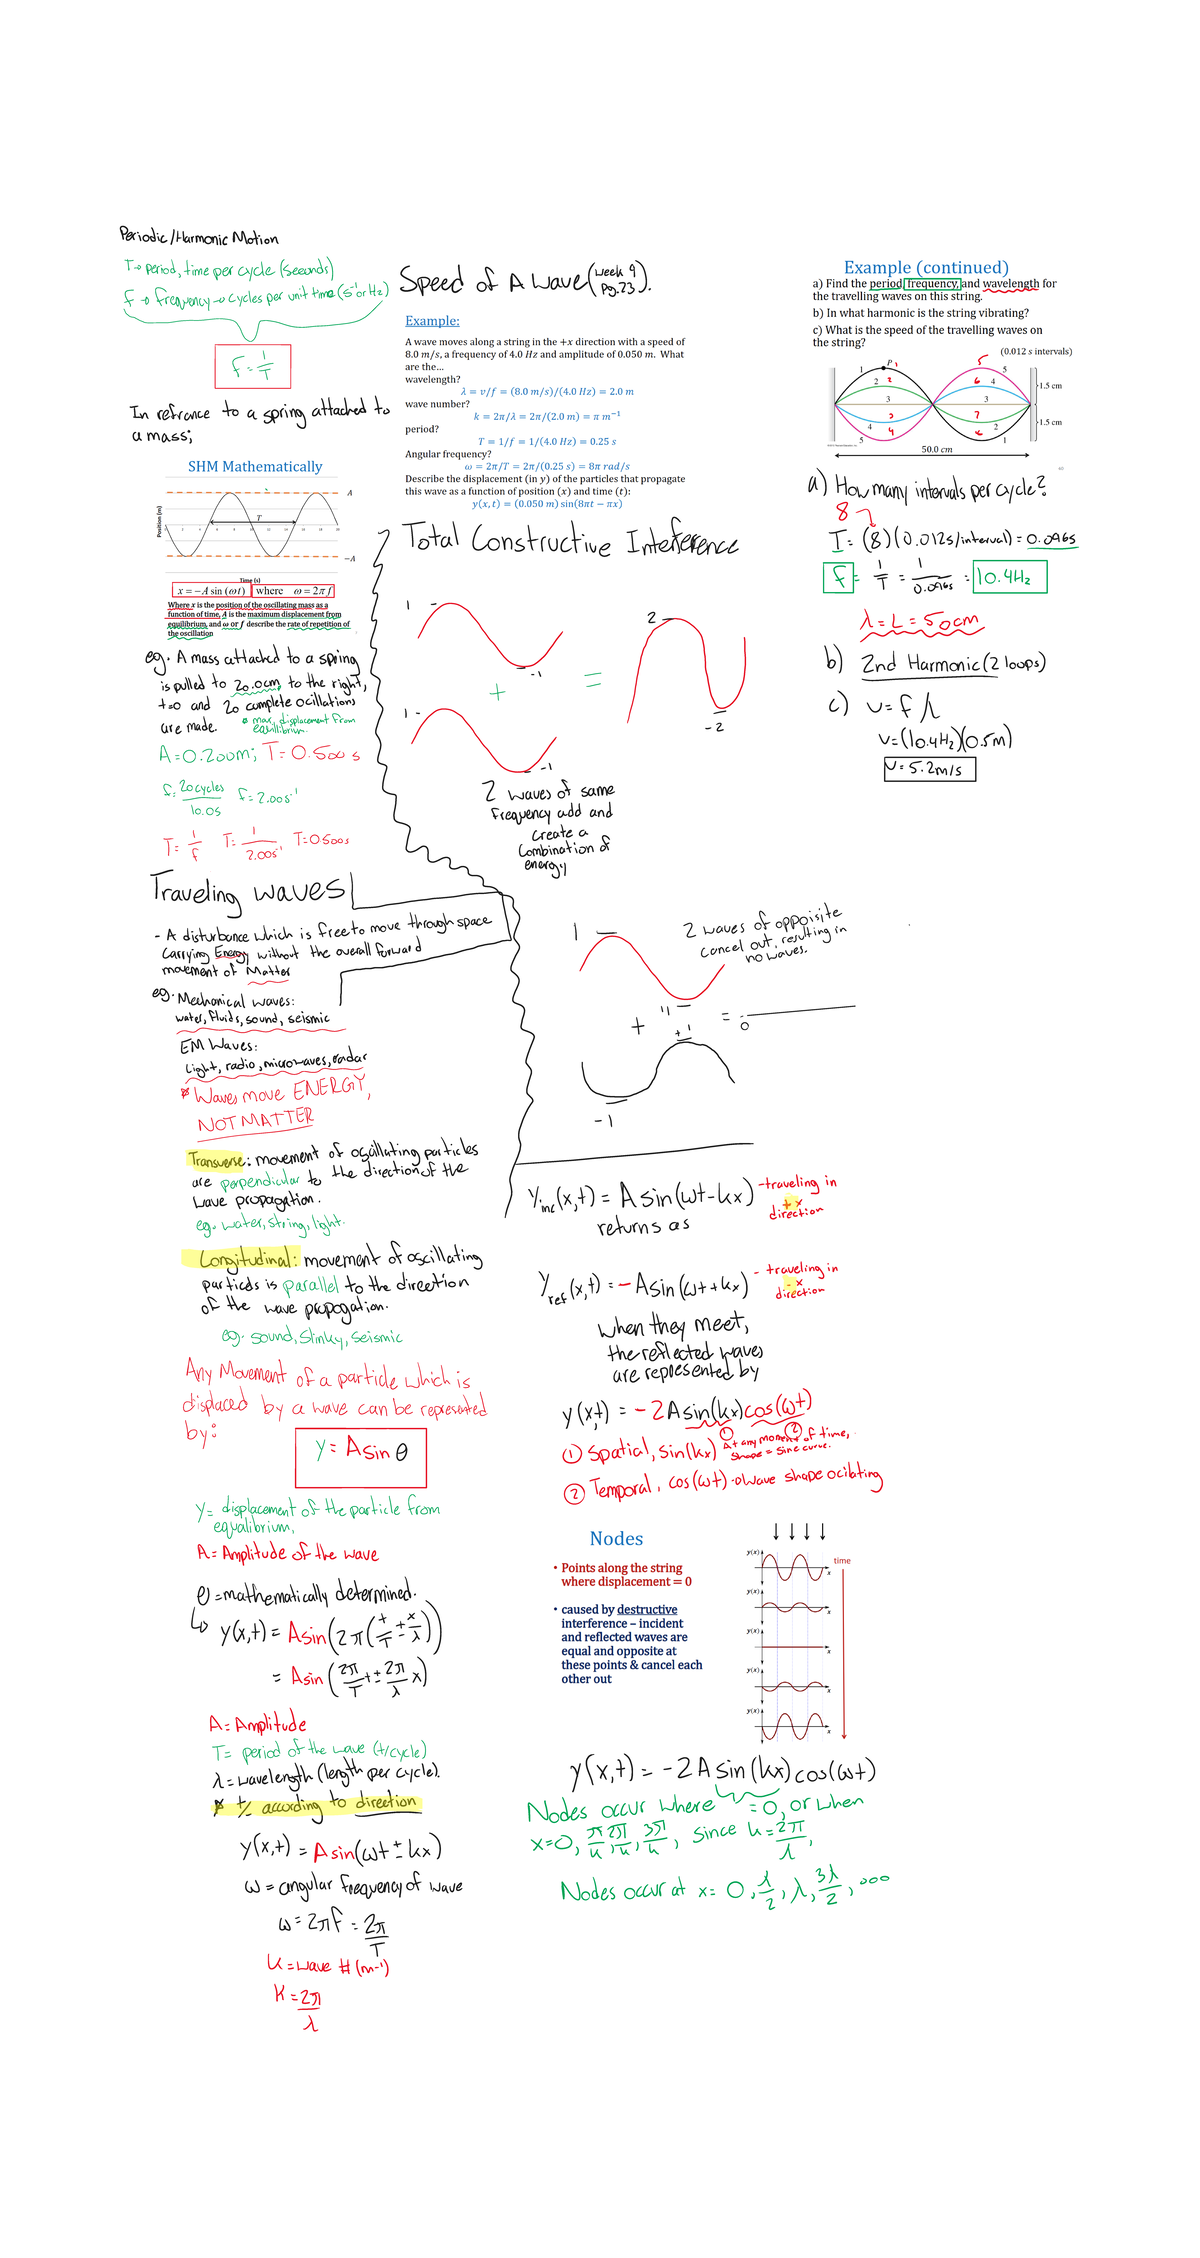 Periodic/Harmonic Motion
T→ period, time per cycle (seconds)
f → frequency → cycles per unit time (s⁻¹ or Hz)
f = 1/T
In refrance to a spring attached to
a mass;
SHM Mathematically
Position (m)
A
T
-A
Time (s)
x = −A sin (ωt) where ω = 2π f
Where x is the position of the oscillating mass as a
function of time, A is the maximum displacement from
equilibrium, and ω or f describe the rate of repetition of
the oscillation
eg. A mass attached to a spring
is pulled to 20.0cm to the right,
t=0 and 20 complete ocillations
are made.
* max displacement from
equilibrium.
A=0.200m; T=0.500 s
f= 20cycles/10.0s f=2.00s⁻¹
T= 1/f T= 1/2.00s⁻¹, T=0.500s
Traveling waves
- A disturbance which is free to move through space
Carrying Energy without the overall forward
movement of Matter
eg. Mechanical waves:
water, fluids, sound, seismic
EM Waves:
Light, radio, microwaves, radar
* Waves move ENERGY,
NOT MATTER
Transverse: movement of oscillating particles
are perpendicular to the direction of the
wave propagation.
eg. water, string, light.
Longitudinal: movement of oscillating
particles is parallel to the direction
of the wave propogation.
eg. sound, Slinky, Seismic
Any Movement of a particle which is
displaced by a wave can be represented
by:
y= A sin θ
Y= displacement of the particle from
equalibrium,
A= Amplitude of the wave
θ =mathematically determined.
↳ y(x,t) = Asin(2π(t/T ± x/λ))
= Asin (2π/T t ± 2π/λ x)
A= Amplitude
T= period of the wave (t/cycle)
λ= wavelength (length per cycle).
* +/- according to direction
y(x,t) = A sin(ωt ± kx)
ω = angular frequency of wave
ω = 2πf = 2π/T
k = wave # (m⁻¹)
K = 2π/λ
Speed of A wave (week 9 Pg.23).
Example:
A wave moves along a string in the +x direction with a speed of
8.0 m/s, a frequency of 4.0 Hz and amplitude of 0.050 m. What
are the…
wavelength?
λ = v/f = (8.0 m/s)/(4.0 Hz) = 2.0 m
wave number?
k = 2π/λ = 2π/(2.0 m) = π m⁻¹
period?
T = 1/f = 1/(4.0 Hz) = 0.25 s
Angular frequency?
ω = 2π/T = 2π/(0.25 s) = 8π rad/s
Describe the displacement (in y) of the particles that propagate
this wave as a function of position (x) and time (t):
y(x,t) = (0.050 m) sin(8πt − πx)
Total Constructive Inteference
1
-1
+
1
-1
=
2
-2
2 waves of same
frequency add and
create a
Combination of
energy
1
-1
+
+1
-1
= 0
2 waves of oppoisite
cancel out, resulting in
no waves.
Yinc(x,t) = A sin(ωt-kx) -traveling in
+x
direction
returns as
Yref(x,t) = -Asin(ωt+kx) - traveling in
-x
direction
when they meet,
the reflected waves
are represented by
y(x,t) = -2Asin(kx)cos(ωt)
① ②
① Spatial, sin(kx) At any moment of time,
shape = sine curve.
② Temporal, cos(ωt) → wave shape ocilating
Nodes
• Points along the string
where displacement = 0
• caused by destructive
interference – incident
and reflected waves are
equal and opposite at
these points & cancel each
other out
y(x)
x
time
y(x)
x
y(x)
x
y(x)
x
y(x)
x
y(x,t) = -2A sin(kx)cos(ωt)
Nodes occur where = 0, or when
x=0, π/k, 2π/k, 3π/k, since k=2π/λ,
Nodes occur at x= 0, λ/2, λ, 3λ/2, ...
Example (continued)
a) Find the period, frequency, and wavelength for
the travelling waves on this string.
b) In what harmonic is the string vibrating?
c) What is the speed of the travelling waves on
the string?
(0.012 s intervals)
P
1
1
2
2
3
3
4
4
5
5
5
6
4
3
7
2
8
1
1.5 cm
1.5 cm
50.0 cm
a) How many intervals per cycle?
8
T= (8)(0.012s/interval) = 0.096s
f = 1/T = 1/0.096s = 10.4Hz
λ = L = 50cm
b) 2nd Harmonic (2 loops)
c) v= f λ
v=(10.4Hz)(0.5m)
v= 5.2m/s